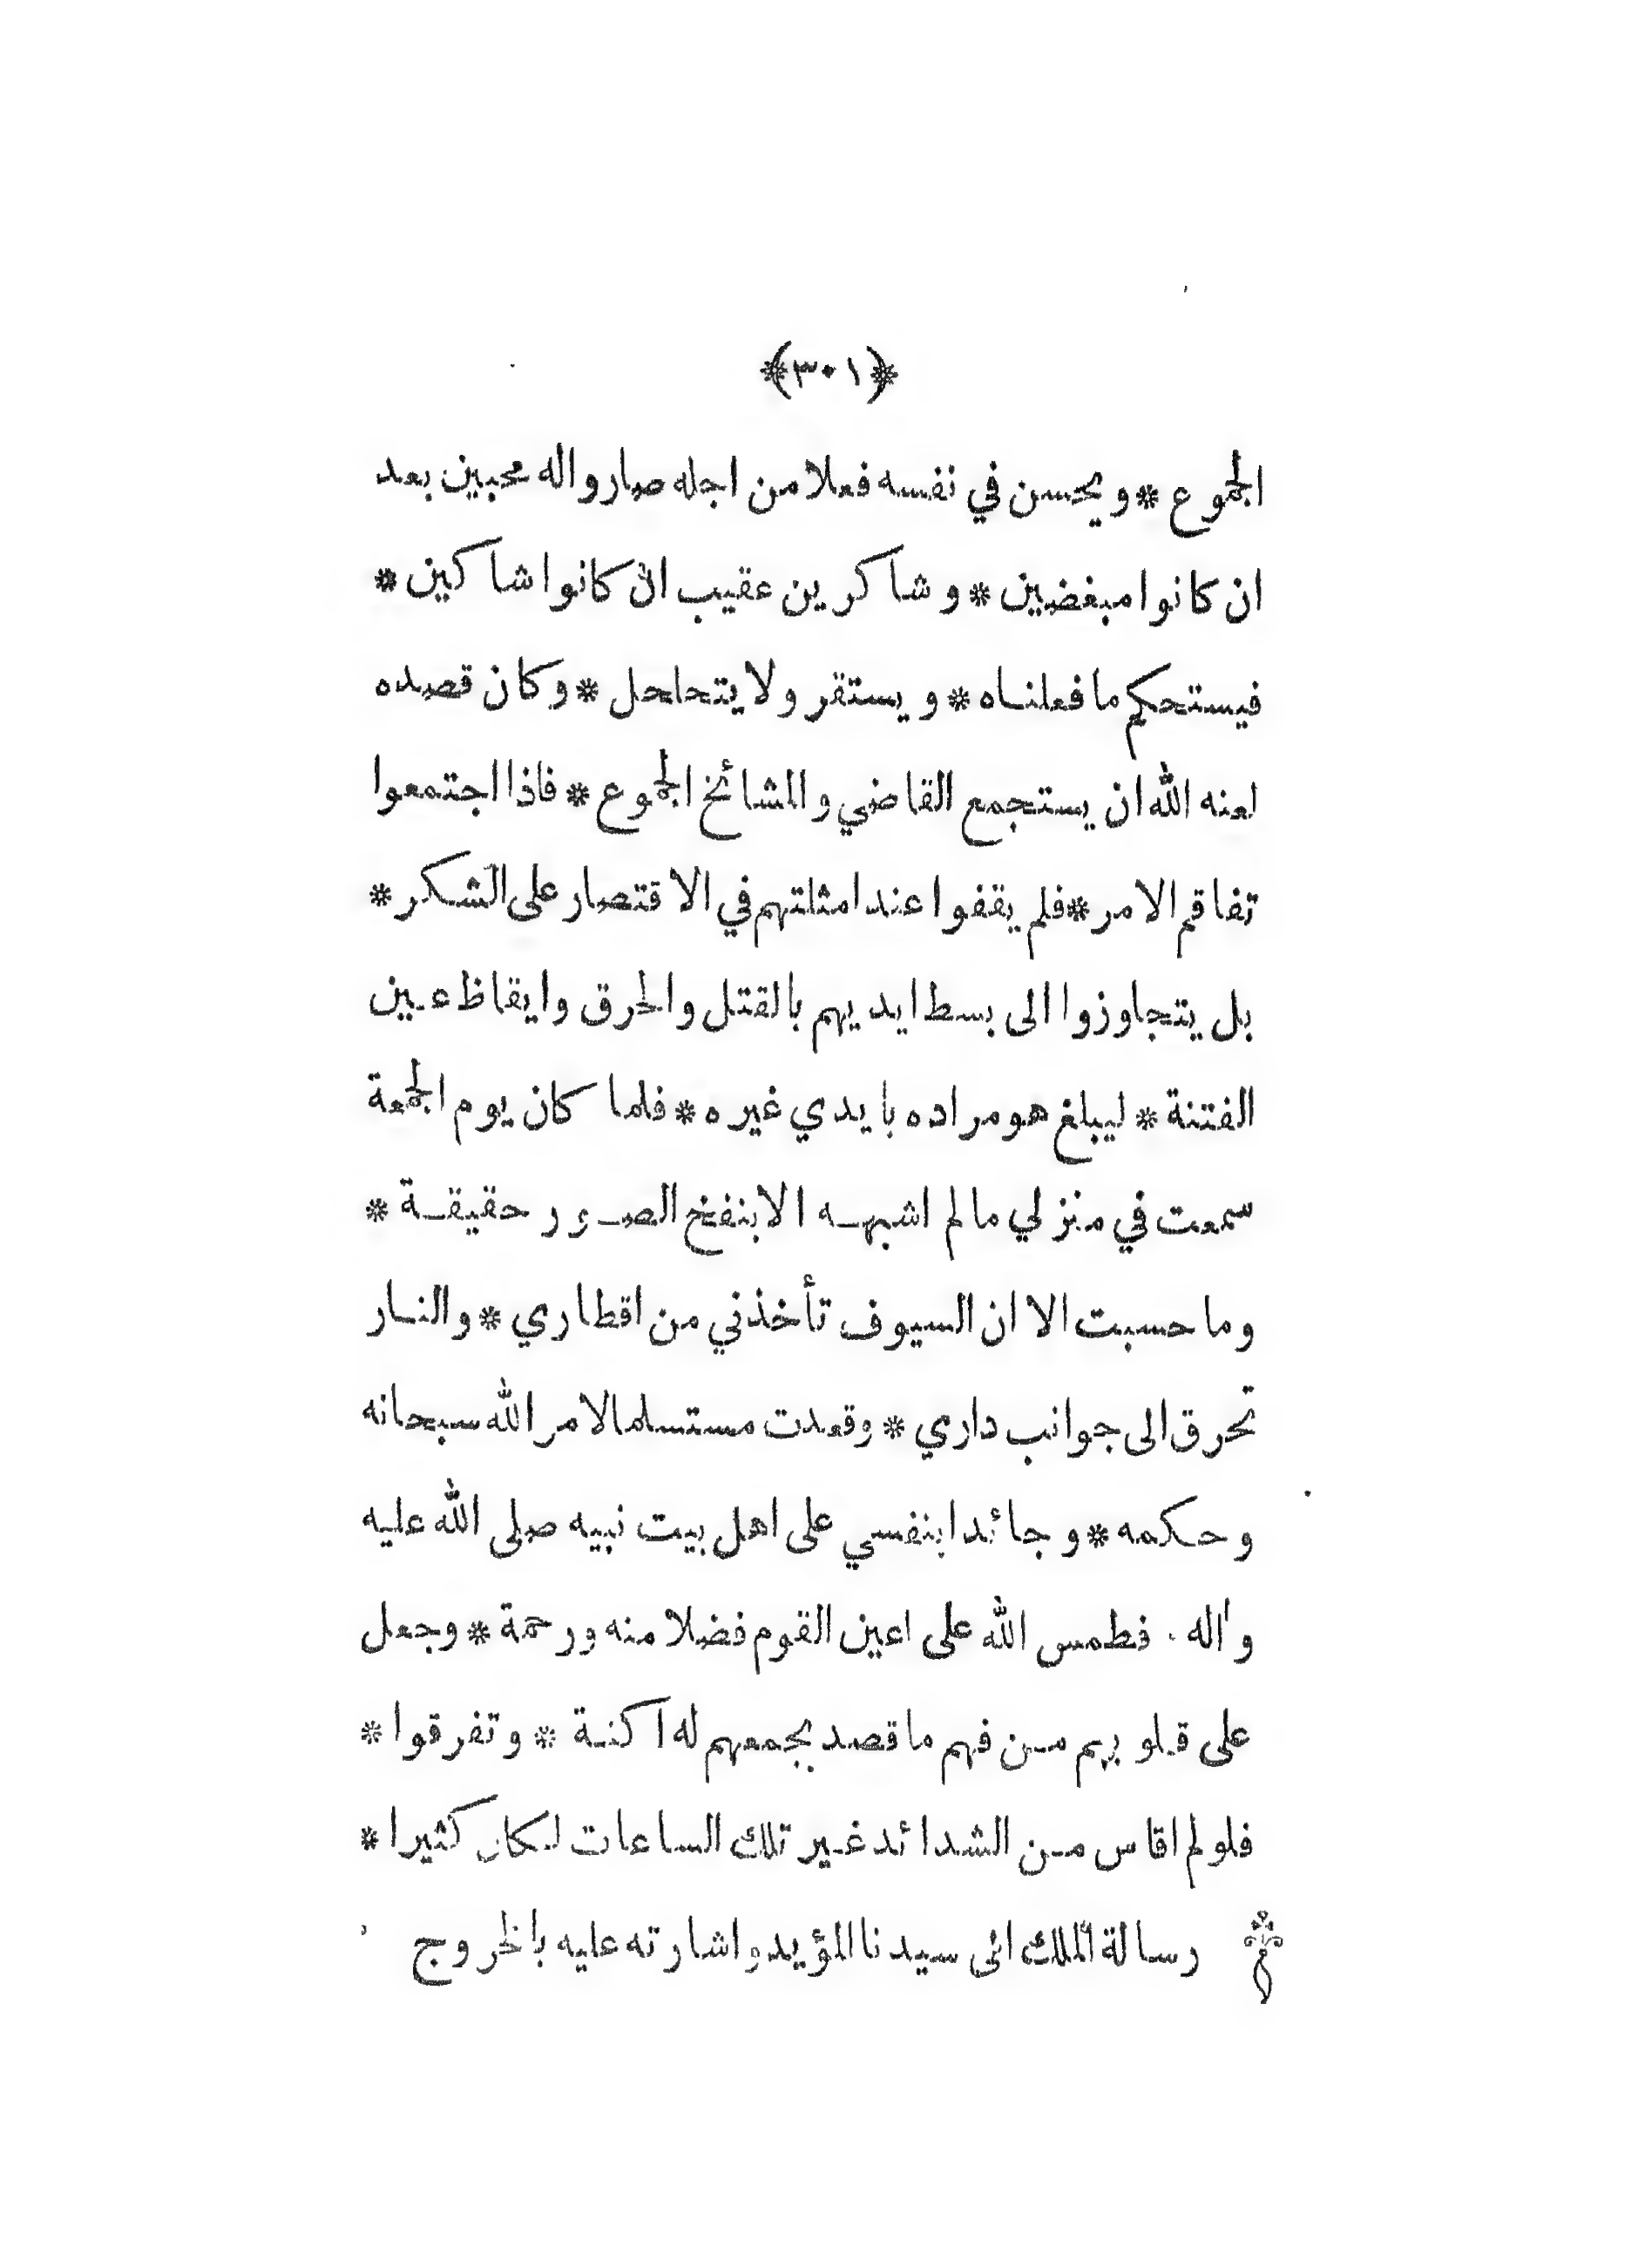 ﴿٣٠١﴾
الجموع * ويحسن في نفسه فعلا من اجله صاروا له محبين بعد
ان كانوا مبغضين * وشاكرين عقيب ان كانوا شاكين *
فيستحكم ما فعلناه * ويستقر ولا يتحلحل * وكان قصده
لعنه الله ان يستجمع القاضي والمشائخ الجموع * فاذا اجتمعوا
تفاقم الامر * فلم يقفوا عند امثلتهم في الاقتصار على الشكر *
بل يتجاوزوا الى بسط ايديهم بالقتل والحرق وايقاظ عين
الفتنة * ليبلغ هو مراده بايدي غيره * فلما كان يوم الجمعة
سمعت في منزلي ما لم اشبهه الا بنفخ الصور حقيقة *
وما حسبت الا ان السيوف تأخذني من اقطاري * والنار
تحرق الى جوانب داري * وقعدت مستسلما لامر الله سبحانه
وحكمه * وجائدا بنفسي على اهل بيت نبيه صلى الله عليه
واله . فطمس الله على اعين القوم فضلا منه ورحمة * وجعل
على قلوبهم من فهم ما قصد بجمعهم له اكنة * وتفرقوا *
فلو لم اقاس من الشدائد غير تلك الساعات لكان كثيرا *
رسالة الملك الى سيدنا المؤيد واشارته عليه بالخروج